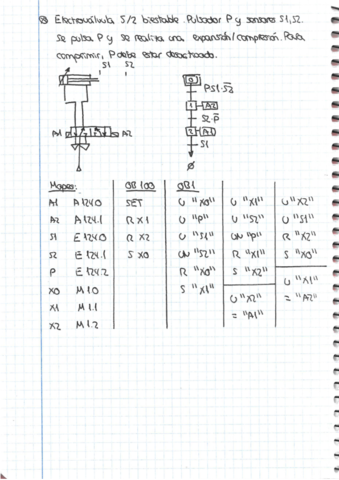 Electroválvula 5/2 biestable. Pulsador P y sensores S1, S2.
Se pulsa P y se realiza una expansión/compresión. Para
comprimir, P debe estar desactivado.
S1 S2
0
P·S1·S̅2̅
1 A2
S2·P̅
2 A1
S1
A1 A2
Mapeo: OB100 OB1
A1 A124.0 SET U "X0" U "X1" U "X2"
A2 A124.1 R X1 U "P" U "S2" U "S1"
S1 E124.0 R X2 U "S1" UN "P" R "X2"
S2 E124.1 S X0 UN "S2" R "X1" S "X0"
P E124.2 R "X0" S "X2" U "X1"
X0 M1.0 S "X1" U "X2" = "A2"
X1 M1.1 = "A1"
X2 M1.2